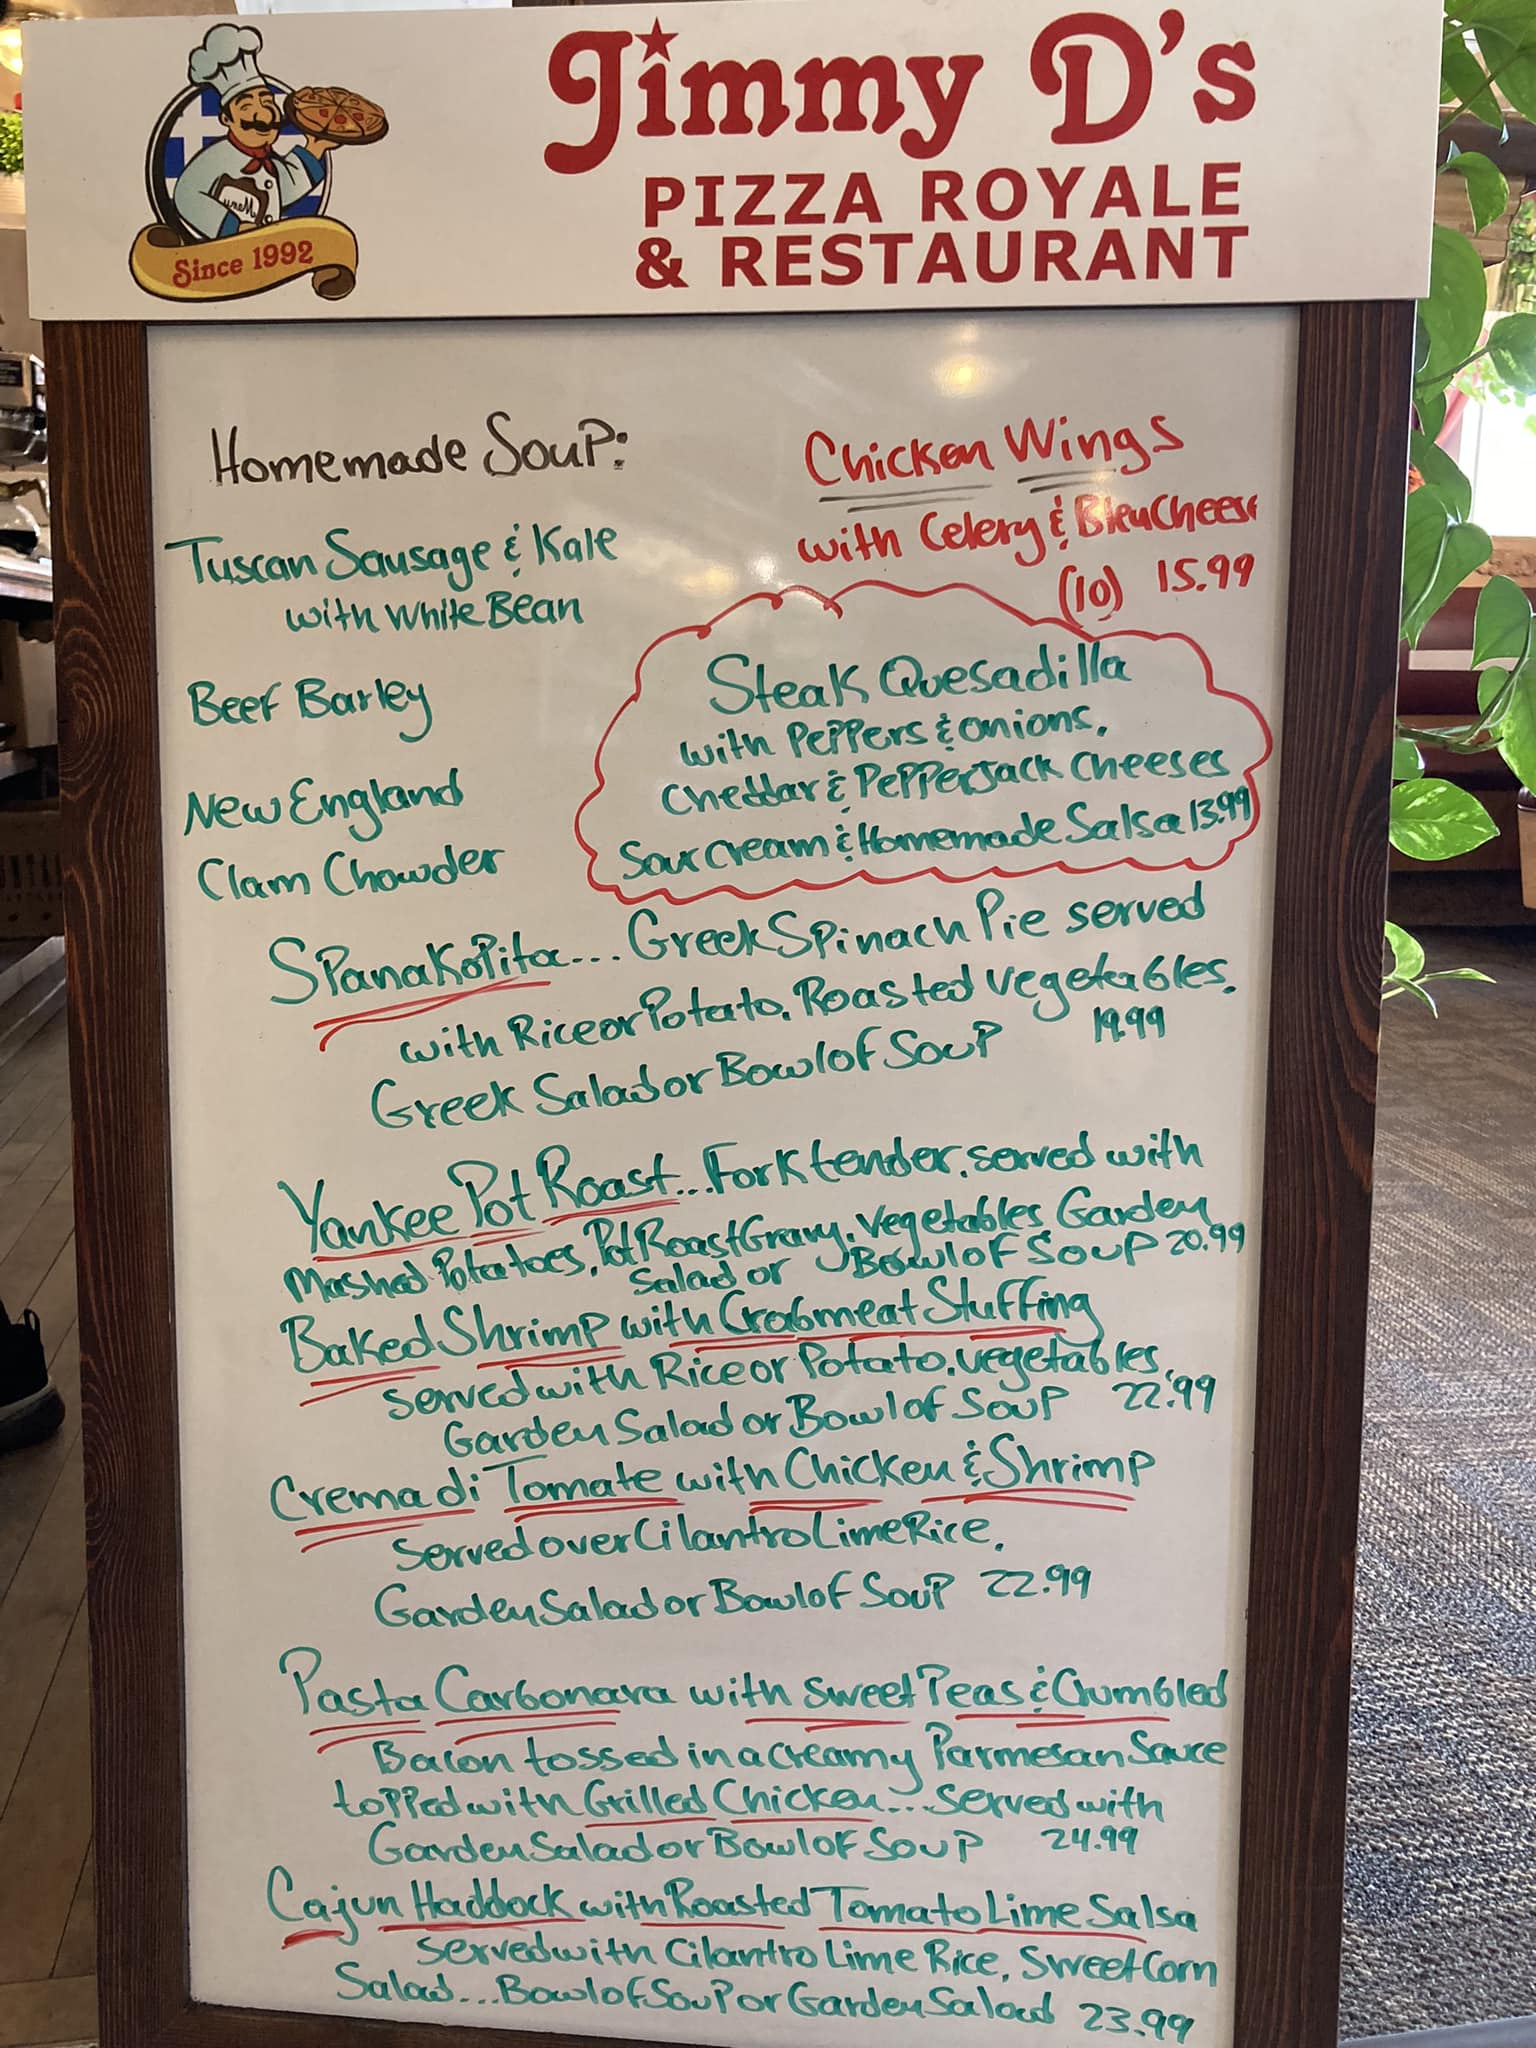 Jimmy D's
PIZZA ROYALE
& RESTAURANT
Menu
Since 1992
Homemade Soup:
Tuscan Sausage & Kale
with White Bean
Beef Barley
New England
Clam Chowder
Chicken Wings
with Celery & Bleu Cheese
(10) 15.99
Steak Quesadilla
with Peppers & onions,
Cheddar & Pepperjack Cheeses
Sour Cream & Homemade Salsa 13.99
Spanakopita... Greek Spinach Pie served
with Rice or Potato, Roasted Vegetables,
19.99
Greek Salad or Bowl of Soup
Yankee Pot Roast... Fork tender, served with
Mashed Potatoes, Pot Roast Gravy, Vegetables Garden
Salad or Bowl of Soup 20.99
Baked Shrimp with Crabmeat Stuffing
served with Rice or Potato, Vegetables,
Garden Salad or Bowl of Soup 22.99
Crema di Tomate with Chicken & Shrimp
Served over Cilantro Lime Rice,
Garden Salad or Bowl of Soup 22.99
Pasta Carbonara with Sweet Peas & Crumbled
Bacon tossed in a creamy Parmesan Sauce
topped with Grilled Chicken... Served with
Garden Salad or Bowl of Soup 24.99
Cajun Haddock with Roasted Tomato Lime Salsa
served with Cilantro Lime Rice, Sweet Corn
Salad... Bowl of Soup or Garden Salad 23.99